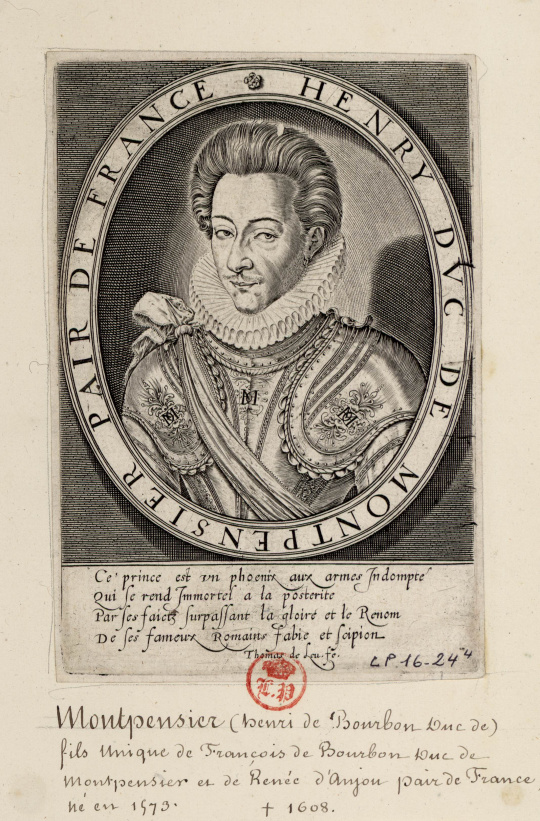 HENRY DVC DE MONTPENSIER PAIR DE FRANCE
M
M
M
Ce prince est vn phoenix aux armes Indompté
Qui se rend Immortel a la posterite
Par ses faictz surpassant la gloire et le Renom
De ses fameux Romains fabie et scipion
Thomas de Leu. fe.
LP.16-24 4
L.P
Montpensier (henri de Bourbon Duc de)
fils unique de François de Bourbon Duc de
Montpensier et de Renée d'Anjou pair de France
né en 1573. † 1608.